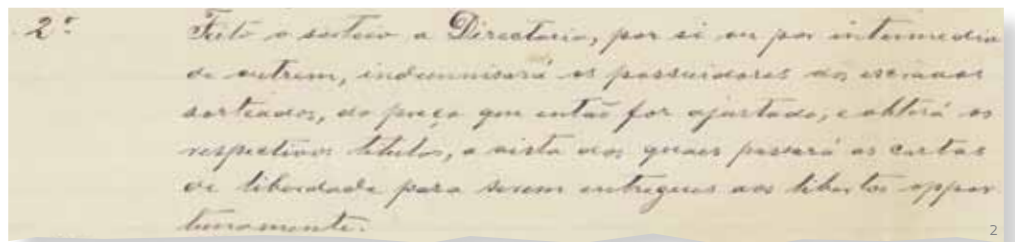 2º Feito o sorteio a Directoria, por si ou por intermedio
de outrem, indemnisará os possuidores dos escravos
sorteados, do preço que então for ajustado; e obterá os
respectivos titulos, a vista dos quaes passará as cartas
de liberdade para serem entregues aos libertos oppor
tunamente.
2